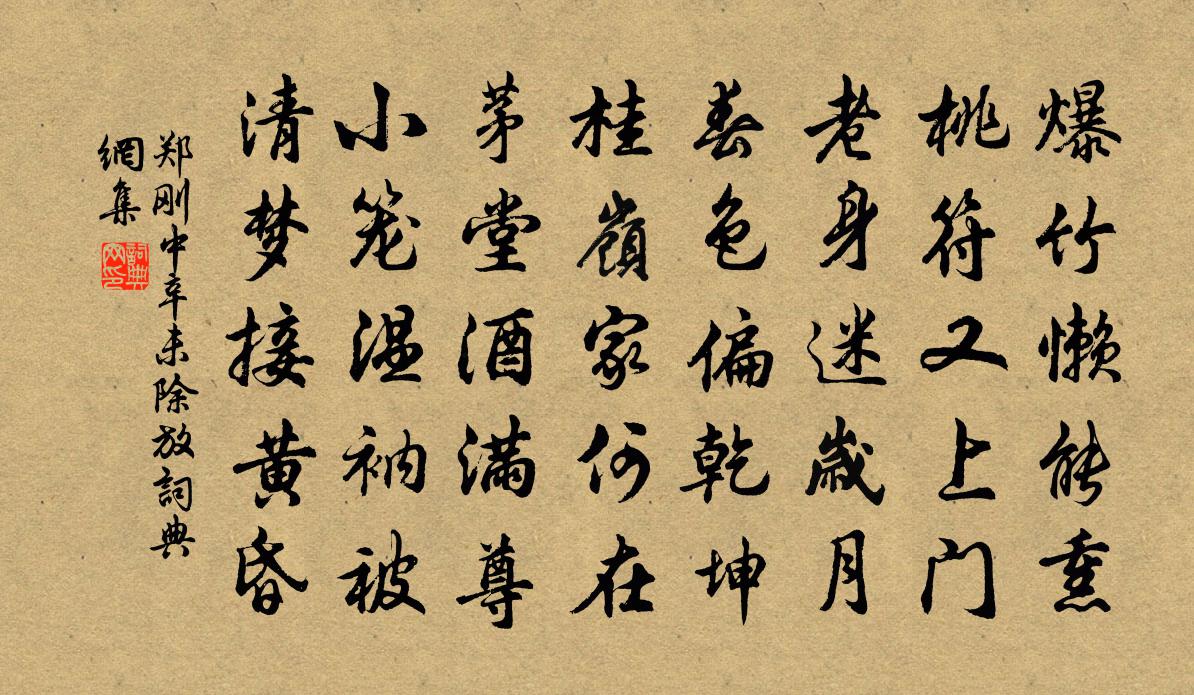 爆竹懒能熏
桃符又上门
老身迷歲月
春色偏乾坤
桂嶺家何在
茅堂酒满尊
小笼温衲被
清梦接黄昏
郑刚中辛未除放詞典
網集
詞典
网印